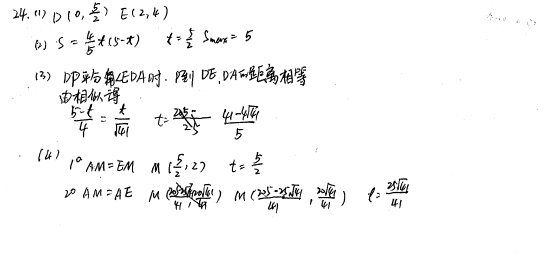 24. (1) D(0, 5/2) E(2, 4)
(2) S = 4/5 t(5-t) t = 5/2 Smax = 5
(3) DP平分角∠EDA时, P到DE, DA的距离相等
由相似得
(5-t)/4 = t/√41 t = (41-4√41)/5
(4) 1° AM=EM M(5/2, 2) t = 5/2
2° AM=AE M((205-25√41)/41, 20√41/41) t = 25√41/41